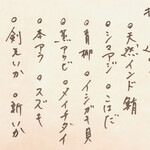 ○天然インド鮪
○シマアジ ○こはだ
○青柳 ○イシガキ貝
○蒸アワビ ○メイチダイ
○本アラ ○スズキ
○剣先いか ○新いか